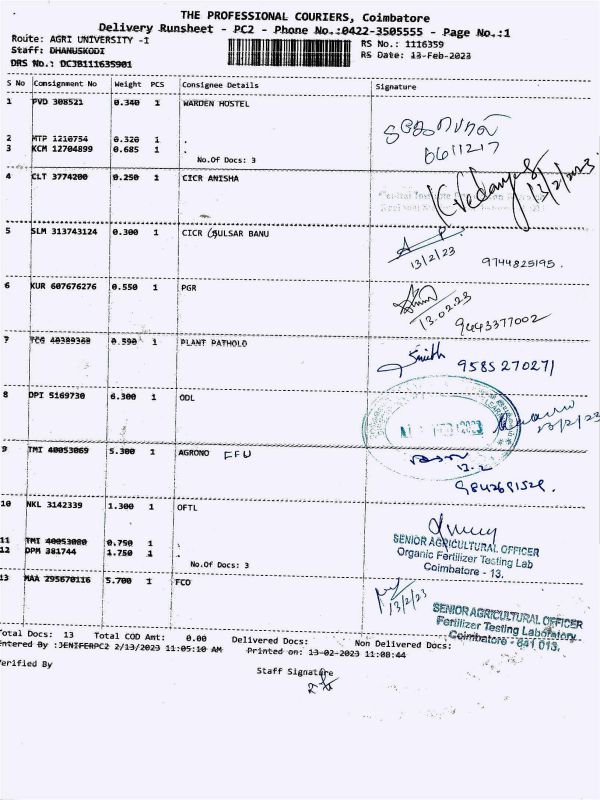 THE PROFESSIONAL COURIERS, Coimbatore
Delivery Runsheet - PC2 - Phone No.:0422-3505555 - Page No.:1
Route: AGRI UNIVERSITY -I
RS No.: 1116359
Staff: DHANUSKODI
RS Date: 13-Feb-2023
DRS No.: DCJB111635901
S No Consignment No Weight PCS Consignee Details Signature
1 PVD 308521 0.340 1 WARDEN HOSTEL
2 MTP 1210754 0.320 1 .
3 KCM 12704899 0.685 1 .
6611217
No.Of Docs: 3
4 CLT 3774200 0.250 1 CICR ANISHA
13/2/2023
5 SLM 313743124 0.300 1 CICR GULSAR BANU
13/2/23
9744825195.
6 KUR 607676276 0.550 1 PGR
13.02.23
9443377002
7 TCG 40389368 0.590 1 PLANT PATHOLO
9585270271
8 DPI 5169730 6.300 1 ODL
13/2/23
9 TMI 40053069 5.300 1 AGRONO FFU
13.2
10 NKL 3142339 1.300 1 OFTL
11 TMI 40053080 0.750 1 .
12 DPM 381744 1.750 1 .
No.Of Docs: 3
SENIOR AGRICULTURAL OFFICER
Organic Fertilizer Testing Lab
Coimbatore - 13.
13 MAA 295670116 5.700 1 FCO
13/2/23
SENIOR AGRICULTURAL OFFICER
Fertilizer Testing Laboratory
Coimbatore - 641 013.
Total Docs: 13 Total COD Amt: 0.00 Delivered Docs: Non Delivered Docs:
Entered By :JENIFERPC2 2/13/2023 11:05:10 AM Printed on: 13-02-2023 11:08:44
Verified By
Staff Signature